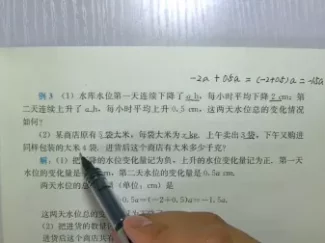 -2a+0.5a=(-2+0.5)a=-1.5a
例3 (1) 水库水位第一天连续下降了 a h, 每小时平均下降 2 cm; 第
二天连续上升了 a h, 每小时平均上升 0.5 cm, 这两天水位总的变化情况
如何?
(2) 某商店原有 5 袋大米, 每袋大米为 x kg. 上午卖出 3 袋, 下午又购进
同样包装的大米 4 袋. 进货后这个商店有大米多少千克?
解: (1) 把下降的水位变化量记为负, 上升的水位变化量记为正. 第一天
水位的变化量是 cm, 第二天水位的变化量是 0.5a cm.
两天水位的总 (单位: cm) 是
0.5a=(-2+0.5)a=-1.5a.
这两天水位总的变化
(2) 把进货的数量
进货后这个商店共有